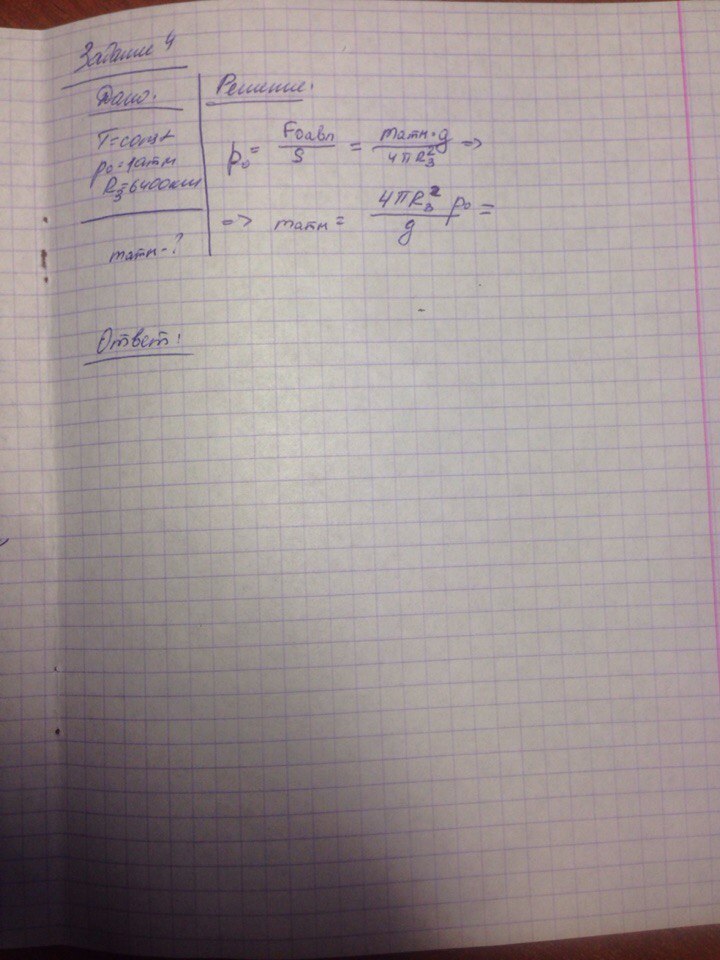 Задание 4
Дано:
T=const
p₀=1атм
R₃=6400км
mатм-?
Решение:
p₀= Fдавл/S = mатм·g/4πR₃² =>
=> mатм= 4πR₃²/g p₀ =
Ответ: